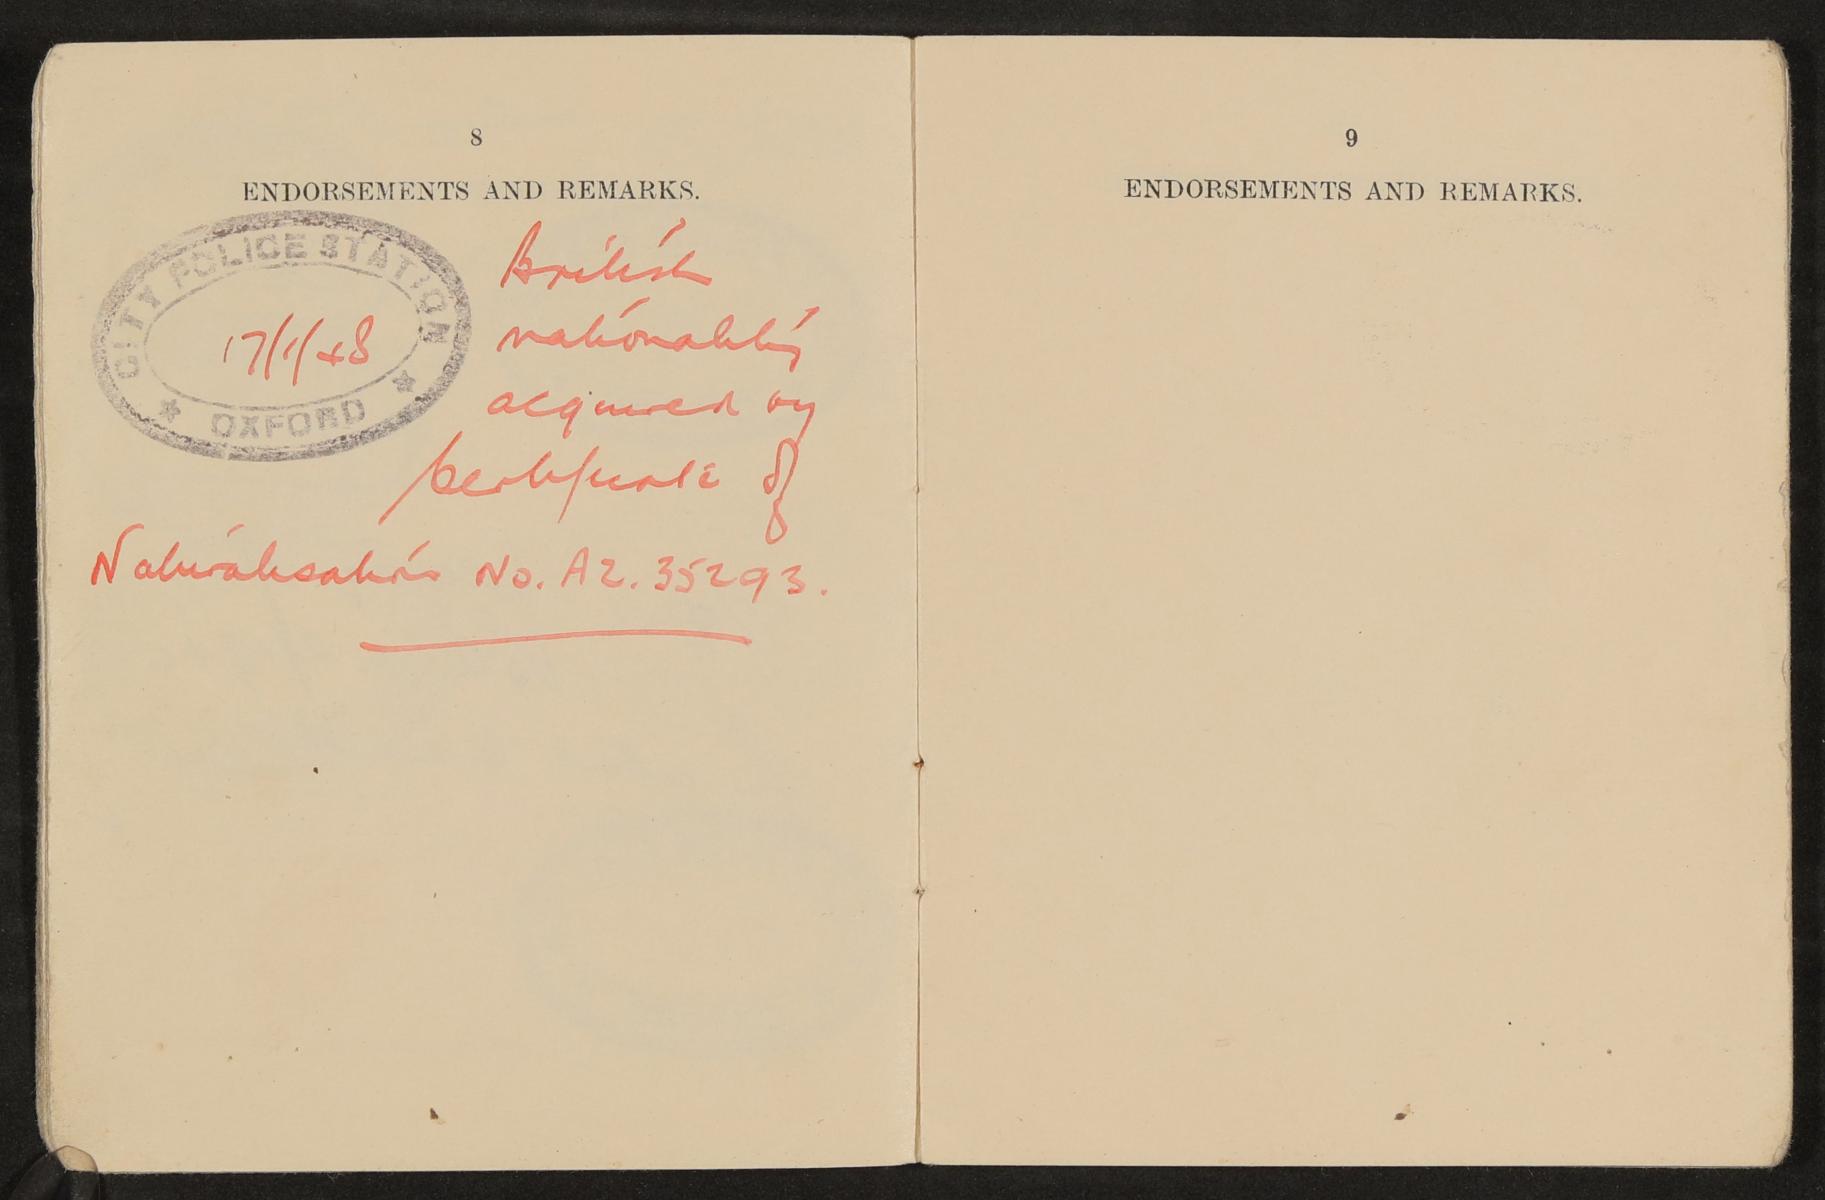 8
ENDORSEMENTS AND REMARKS.
CITY POLICE STATION
17/1/48
OXFORD
British
nationality
acquired by
Certificate of
Naturalisation No. AZ. 35293.
9
ENDORSEMENTS AND REMARKS.